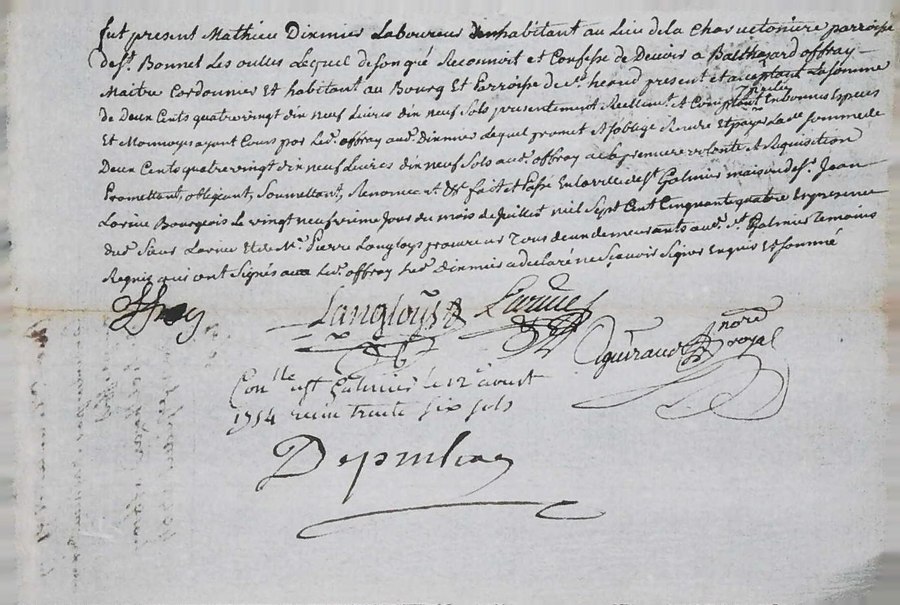 fut present Mathieu Dixmier Laboureur habitant au Lieu dela Charvetoniere parroisse
de st. Bonnet Les oulles Lequel de son gré Reconnoit et Confesse de Devoir a Balthazard offray
Maitre Cordonnier et habitant au Bourg Et Parroisse de st. heand present et acceptant La somme
de Deux Cents quatre vingt dix neuf Livres dix neuf Sols presentement Reellemt. Et Comptant En bonnes Especes
Et Monnoye ayant Cours par led. offray aud. Dixmier Lequel promet Et soblige Rendre Et payer Lad. somme de
Deux Cents quatre vingt dix neuf Livres dix neuf Sols aud. offray a la premiere volonté Et Requisition
Promettant, obligeant, Soumettant, Renonceant &a fait et Passé En la ville de st. Galmier maison de sr. Jean
Larive Bourgeois Le vingt neuvieme Jour du mois de Juillet mil Sept Cent Cinquante quatre En presence
dud. Sieur Larive et de Me. Pierre Langloys procureur Tous deux demeurants aud. st. Galmier temoins
Requis qui ont Signés avec Led. offray Led. dixmier a declaré ne sçavoir Signer Enquis Et sommé
Offray
Langloys Larive
Guiraud Nore
royal
Conlle a st Galmier le 12e aoust
1754 recu trente six sols